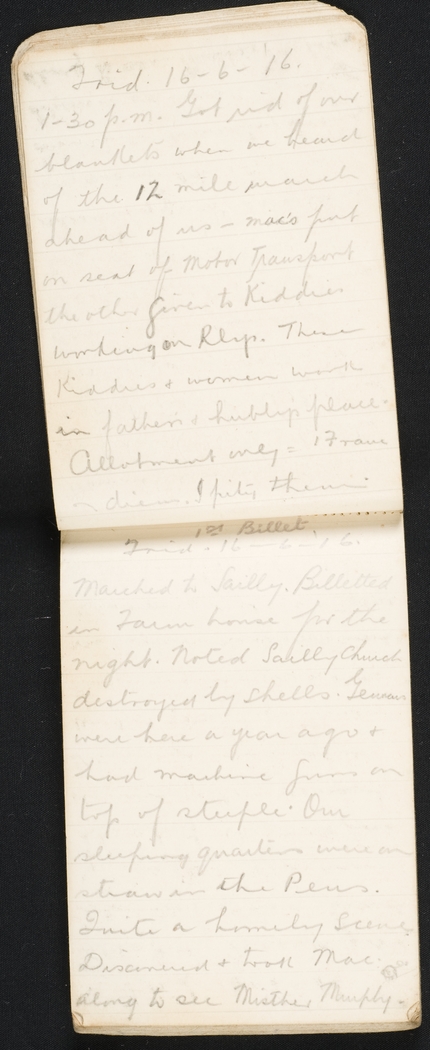 Frid. 16-6-'16.
1-30 p.m. Got rid of our
blankets when we heard
of the 12 mile march
ahead of us - mac's put
on seat of Motor Transport
the other given to Kiddies
working on Rlys. These
Kiddies & women work
in father's & hubby's place.
Allotment only = 1 Franc
diem. I pity them
1st Billet
Frid. 16-6-'16.
Marched to Sailly. Billetted
in Farm house for the
night. Noted Sailly Church
destroyed by shells. Germans
were here a year ago &
had machine guns on
top of steeple. Our
sleeping quarters were on
straw in the Pens.
Quite a homely scene.
Discovered & took Mac.
along to see Misther Murphy.